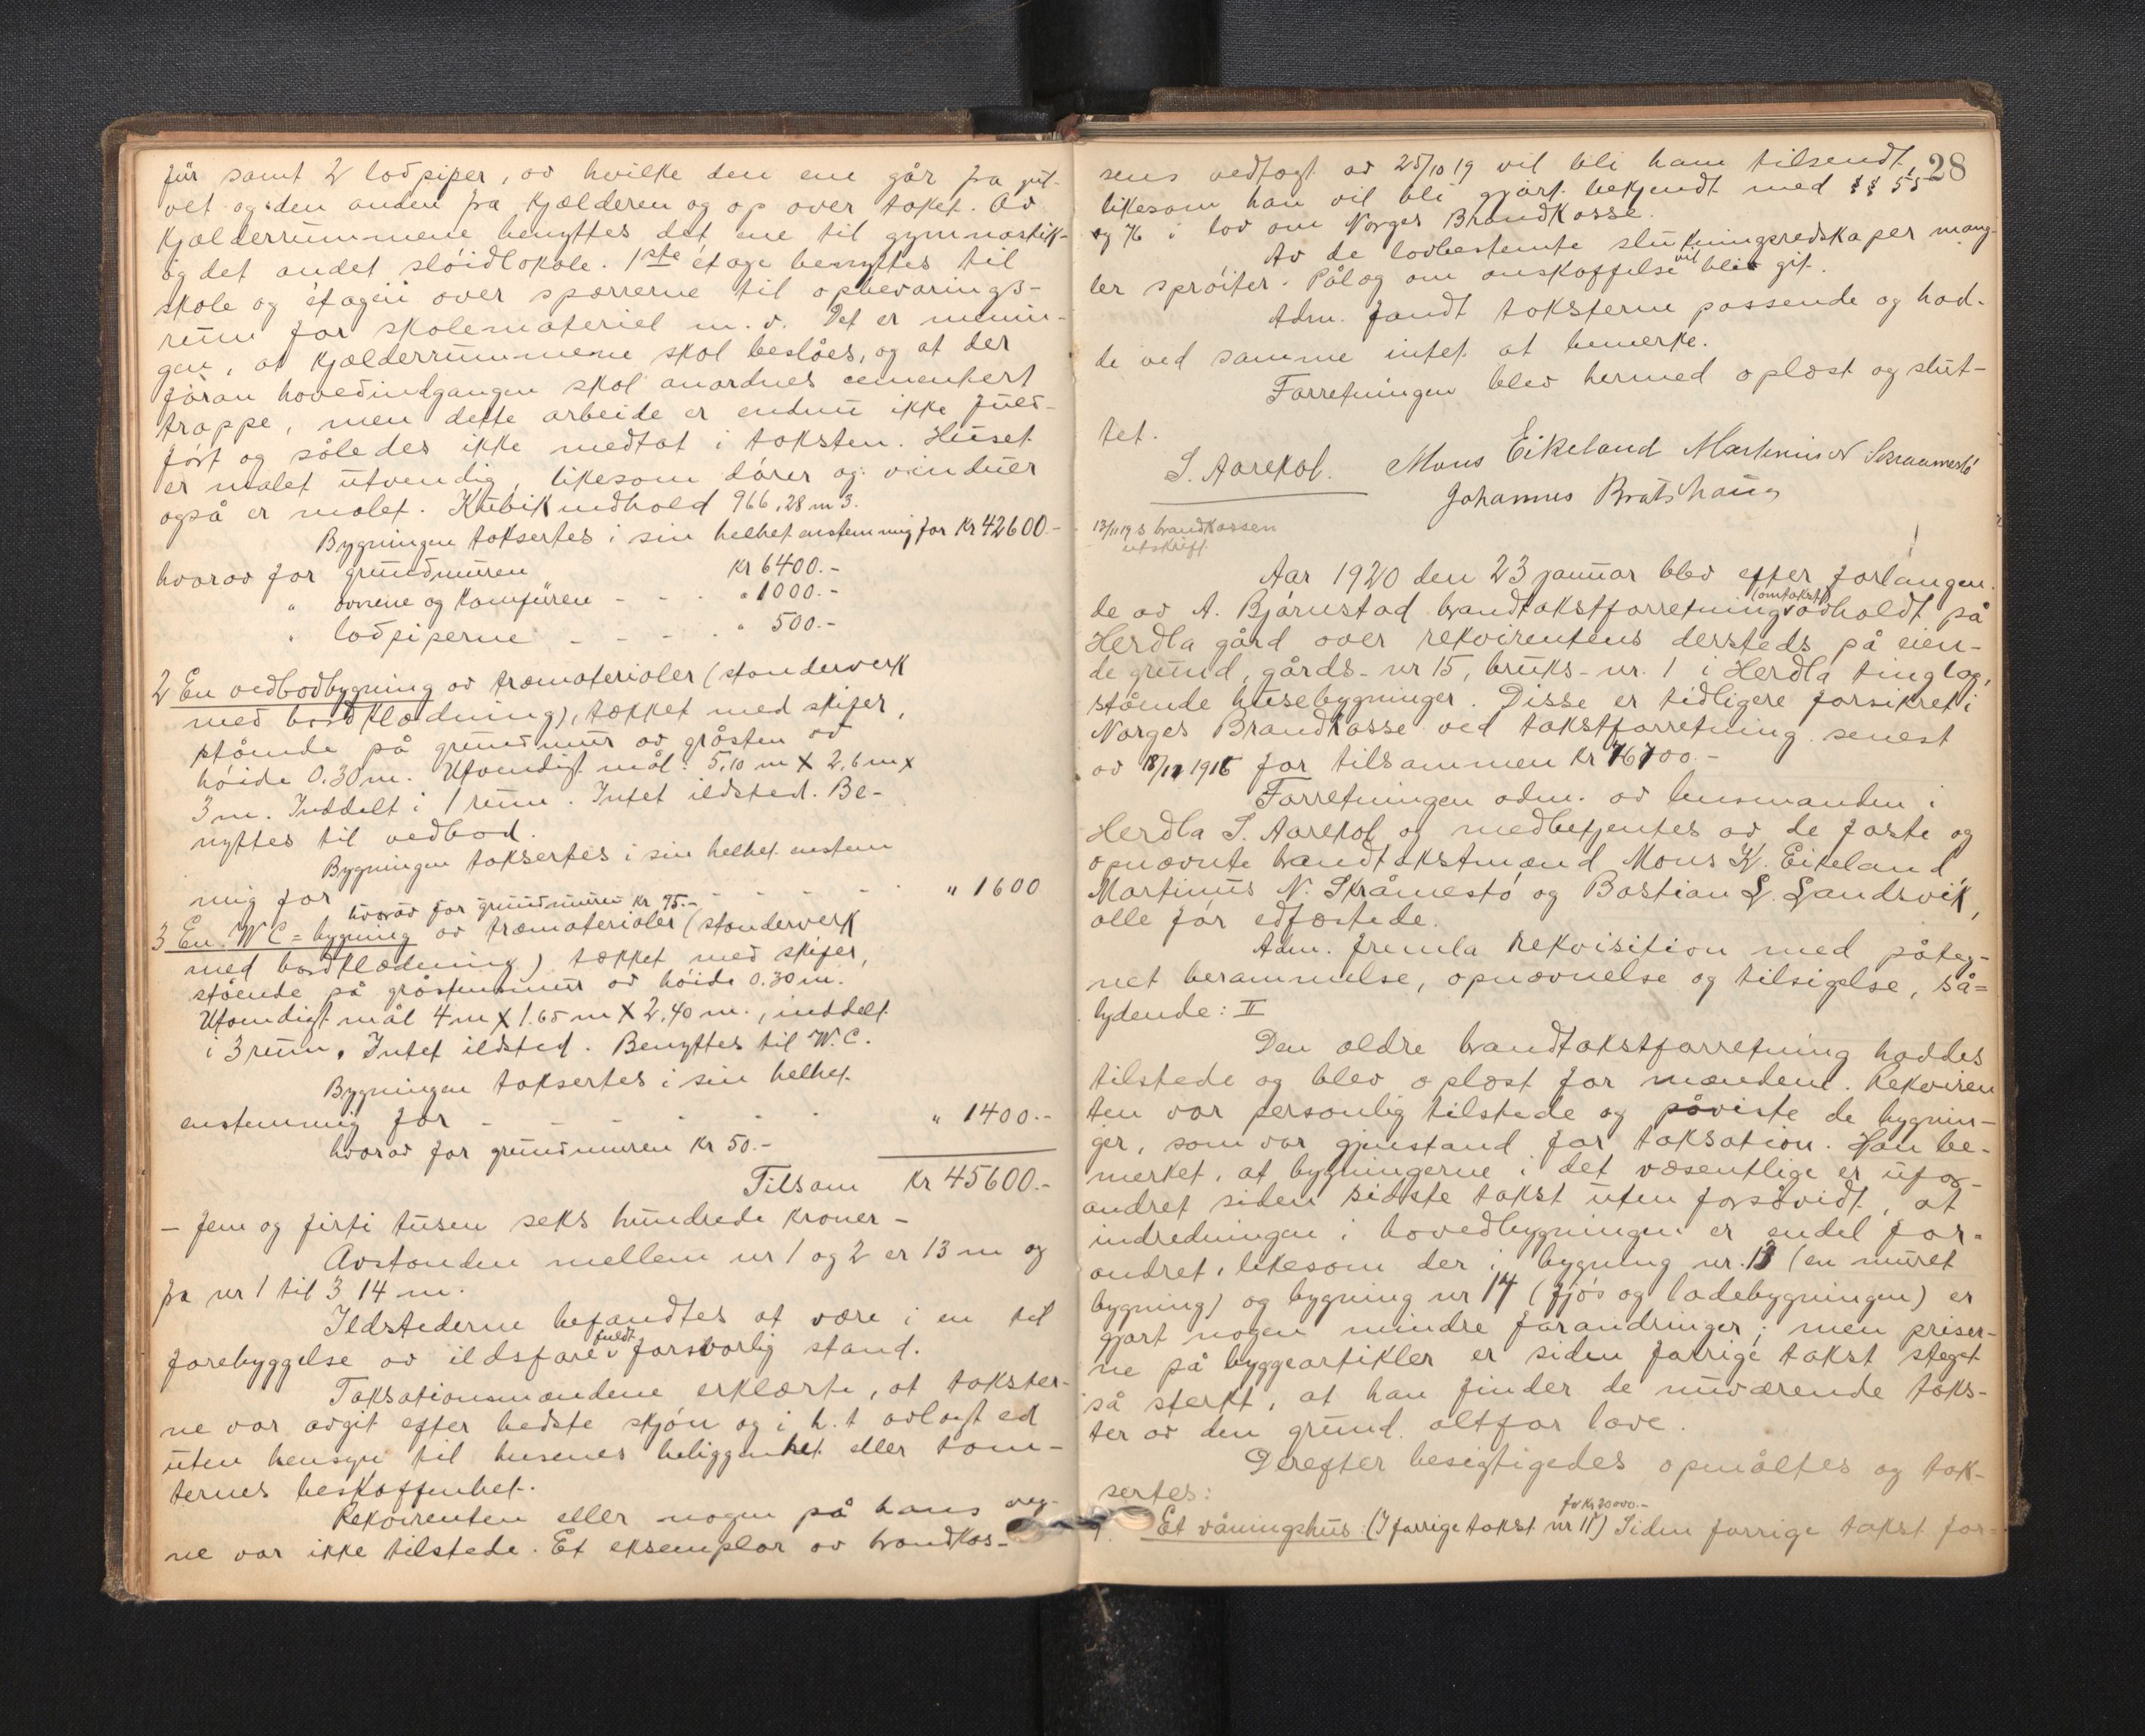 für samt 2 lodpiper, av hvilke den ene går fra gul-
vet og den anden fra kjælderen og op over taket. Av
kjælderrummene benyttes det ene til gymnastik-
og det andet sløidlokale. 1ste étage benyttes til
skole og étagen over sparrerne til opbevarings-
rum for skolemateriel m. v. Det er menin-
gen, at kjælderrummene skal beslåes, og at der
foran hovedindgangen skal anordnes cementert
trappe, men dette arbeide er endnu ikke fuld-
ført og således ikke medtat i taksten. Huset
er malet utvendig, likesom dører og vinduer
også er malet. Kubikindhold 966,28 m3.
Bygningen taksertes i sin helhet enstemmig for Kr 42600.-
hvorav for grundmuren Kr 6400.-
" ovnene og komfüren - - " 1000.-
" lodpiperne - - - - " 500.-
2 En vedbodbygning av træmaterialer (standerverk
med bordklædning), tækket med skifer,
stående på grundmur av gråsten av
høide 0.30 m. Utvendigt mål: 5,10 m X 2,6 m X
3 m. Inddelt i 1 rum. Intet ildsted. Be-
nyttes til vedbod.
Bygningen taksertes i sin helhet enstem
mig for - - - - - " 1600
hvorav for grundmuren Kr 75.-
3 En W C = bygning av træmaterialer (standerverk
med bordklædning) tækket med skifer,
stående på gråstensmur av høide 0.30 m.
Utvendigt mål 4 m X 1.65 m X 2,40 m., inddelt
i 3 rum. Intet ildsted. Benyttes til W.C.
Bygningen taksertes i sin helhet
enstemmig for - - - - - " 1400.-
hvorav for grundmuren Kr 50.-
Tilsam Kr 45600.-
- fem og firti tusen seks hundrede kroner -
Avstanden mellem nr 1 og 2 er 13 m og
fra nr 1 til 3 14 m.
Ildstederne befandtes at være i en til
forebyggelse av ildsfare fuldt forsvarlig stand.
Taksationsmændene erklærte, at takster-
ne var avgit efter bedste skjøn og i h. t avlagt ed
uten hensyn til husenes beliggenhet eller tom-
ternes beskaffenhet.
Rekvirenten eller nogen på hans veg-
ne var ikke tilstede. Et eksemplar av brandkas-
28
sens vedtægt av 25/10 19 vil bli ham tilsendt,
likesom han vil bli gjort bekjendt med §§ 55
og 76 i lov om Norges Brandkasse.
Av de lovbestemte slukningsredskaper mang-
ler sprøiter. Pålæg om anskaffelse vil bli git.
Adm. fandt taksterne passende og had-
de ved samme intet at bemerke.
Forretningen blev hermed oplæst og slut-
tet.
S. Aarekol. Mons Eikeland Martinus N Skraamestø
Johannes Bratshaug
13/11 19 s brandkassen
utskrift.
Aar 1920 den 23 januar blev efter forlangen-
de av A. Bjørnstad brandtakstforretning (omtakst) avholdt på
Herdla gård over rekvirentens dersteds på eien-
de grund, gårds-nr 15, bruks-nr. 1 i Herdla tinglag,
stående husebygninger. Disse er tidligere forsikret i
Norges Brandkasse ved takstforretning senest
av 18/12 1916 for tilsammen Kr 76700.-
Forretningen adm. av lensmanden i
Herdla S. Aarekol og medbetjentes av de faste og
opnævnte brandtakstmænd Mons K. Eikeland
Martinus N. Skråmestø og Bastian L. Landsvik,
alle før edfæstede.
Adm. fremla rekvisition med påteg-
net berammelse, opnævnelse og tilsigelse, så=
lydende: II
Den ældre brandtakstforretning haddes
tilstede og blev oplæst for mændene. Rekviren
ten var personlig tilstede og påviste de bygnin-
ger, som var gjenstand for taksation. Han be-
merket, at bygningerne i det væsentlige er ufor-
andret siden sidste takst uten forsåvidt, at
indredningen i hovedbygningen er endel for-
andret, likesom der i bygning nr. 13 (en muret
bygning) og bygning nr 14 (fjøs og ladebygningen) er
gjort nogen mindre forandringer; men priser-
ne på byggeartikler er siden forrige takst steget
så sterkt, at han finder de nuværende taks-
ter av den grund altfor lave.
Derefter besigtigedes opmåltes og tak-
sertes:
for Kr 20000.-
1. Et våningshus: (I forrige takst nr 11) Siden forrige takst for-